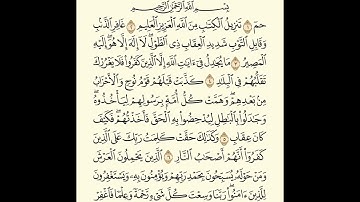 بِسْمِ ٱللَّهِ ٱلرَّحْمَٰنِ ٱلرَّحِيمِ
حمٓ ١ تَنزِيلُ ٱلْكِتَٰبِ مِنَ ٱللَّهِ ٱلْعَزِيزِ ٱلْعَلِيمِ ٢ غَافِرِ ٱلذَّنۢبِ
وَقَابِلِ ٱلتَّوْبِ شَدِيدِ ٱلْعِقَابِ ذِى ٱلطَّوْلِ لَآ إِلَٰهَ إِلَّا هُوَ إِلَيْهِ
ٱلْمَصِيرُ ٣ مَا يُجَٰدِلُ فِىٓ ءَايَٰتِ ٱللَّهِ إِلَّا ٱلَّذِينَ كَفَرُوا۟ فَلَا يَغْرُرْكَ
تَقَلُّبُهُمْ فِى ٱلْبِلَٰدِ ٤ كَذَّبَتْ قَبْلَهُمْ قَوْمُ نُوحٍ وَٱلْأَحْزَابُ
مِنۢ بَعْدِهِمْ وَهَمَّتْ كُلُّ أُمَّةٍۭ بِرَسُولِهِمْ لِيَأْخُذُوهُ
وَجَٰدَلُوا۟ بِٱلْبَٰطِلِ لِيُدْحِضُوا۟ بِهِ ٱلْحَقَّ فَأَخَذْتُهُمْ فَكَيْفَ
كَانَ عِقَابِ ٥ وَكَذَٰلِكَ حَقَّتْ كَلِمَتُ رَبِّكَ عَلَى ٱلَّذِينَ
كَفَرُوٓا۟ أَنَّهُمْ أَصْحَٰبُ ٱلنَّارِ ٦ ٱلَّذِينَ يَحْمِلُونَ ٱلْعَرْشَ
وَمَنْ حَوْلَهُۥ يُسَبِّحُونَ بِحَمْدِ رَبِّهِمْ وَيُؤْمِنُونَ بِهِۦ وَيَسْتَغْفِرُونَ
لِلَّذِينَ ءَامَنُوا۟ رَبَّنَا وَسِعْتَ كُلَّ شَىْءٍ رَّحْمَةً وَعِلْمًا فَٱغْفِرْ